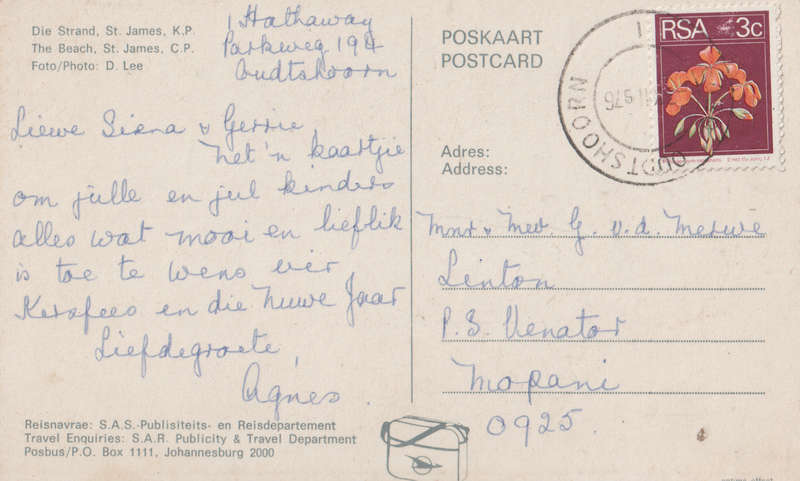 Die Strand, St. James, K.P.
The Beach, St. James, C.P.
Foto/Photo: D. Lee
1 Hathaway
Parkweg 194
Oudtshoorn
Liewe Siena & Gerrie
Net 'n kaartjie
om jülle en jul kinders
alles wat mooi en lieflik
is toe te wens vir
Kersfees en die Nuwe Jaar
Liefdegroete,
Agnes.
Reisnavrae: S.A.S.-Publisiteits- en Reisdepartement
Travel Enquiries: S.A.R. Publicity & Travel Department
Posbus/P.O. Box 1111, Johannesburg 2000
POSKAART
POSTCARD
RSA 3c
OUDTSHOORN
Adres:
Address:
Mnr & Mev. G. v.d. Merwe
Linton
P.S. Venator
Mopani
0925.